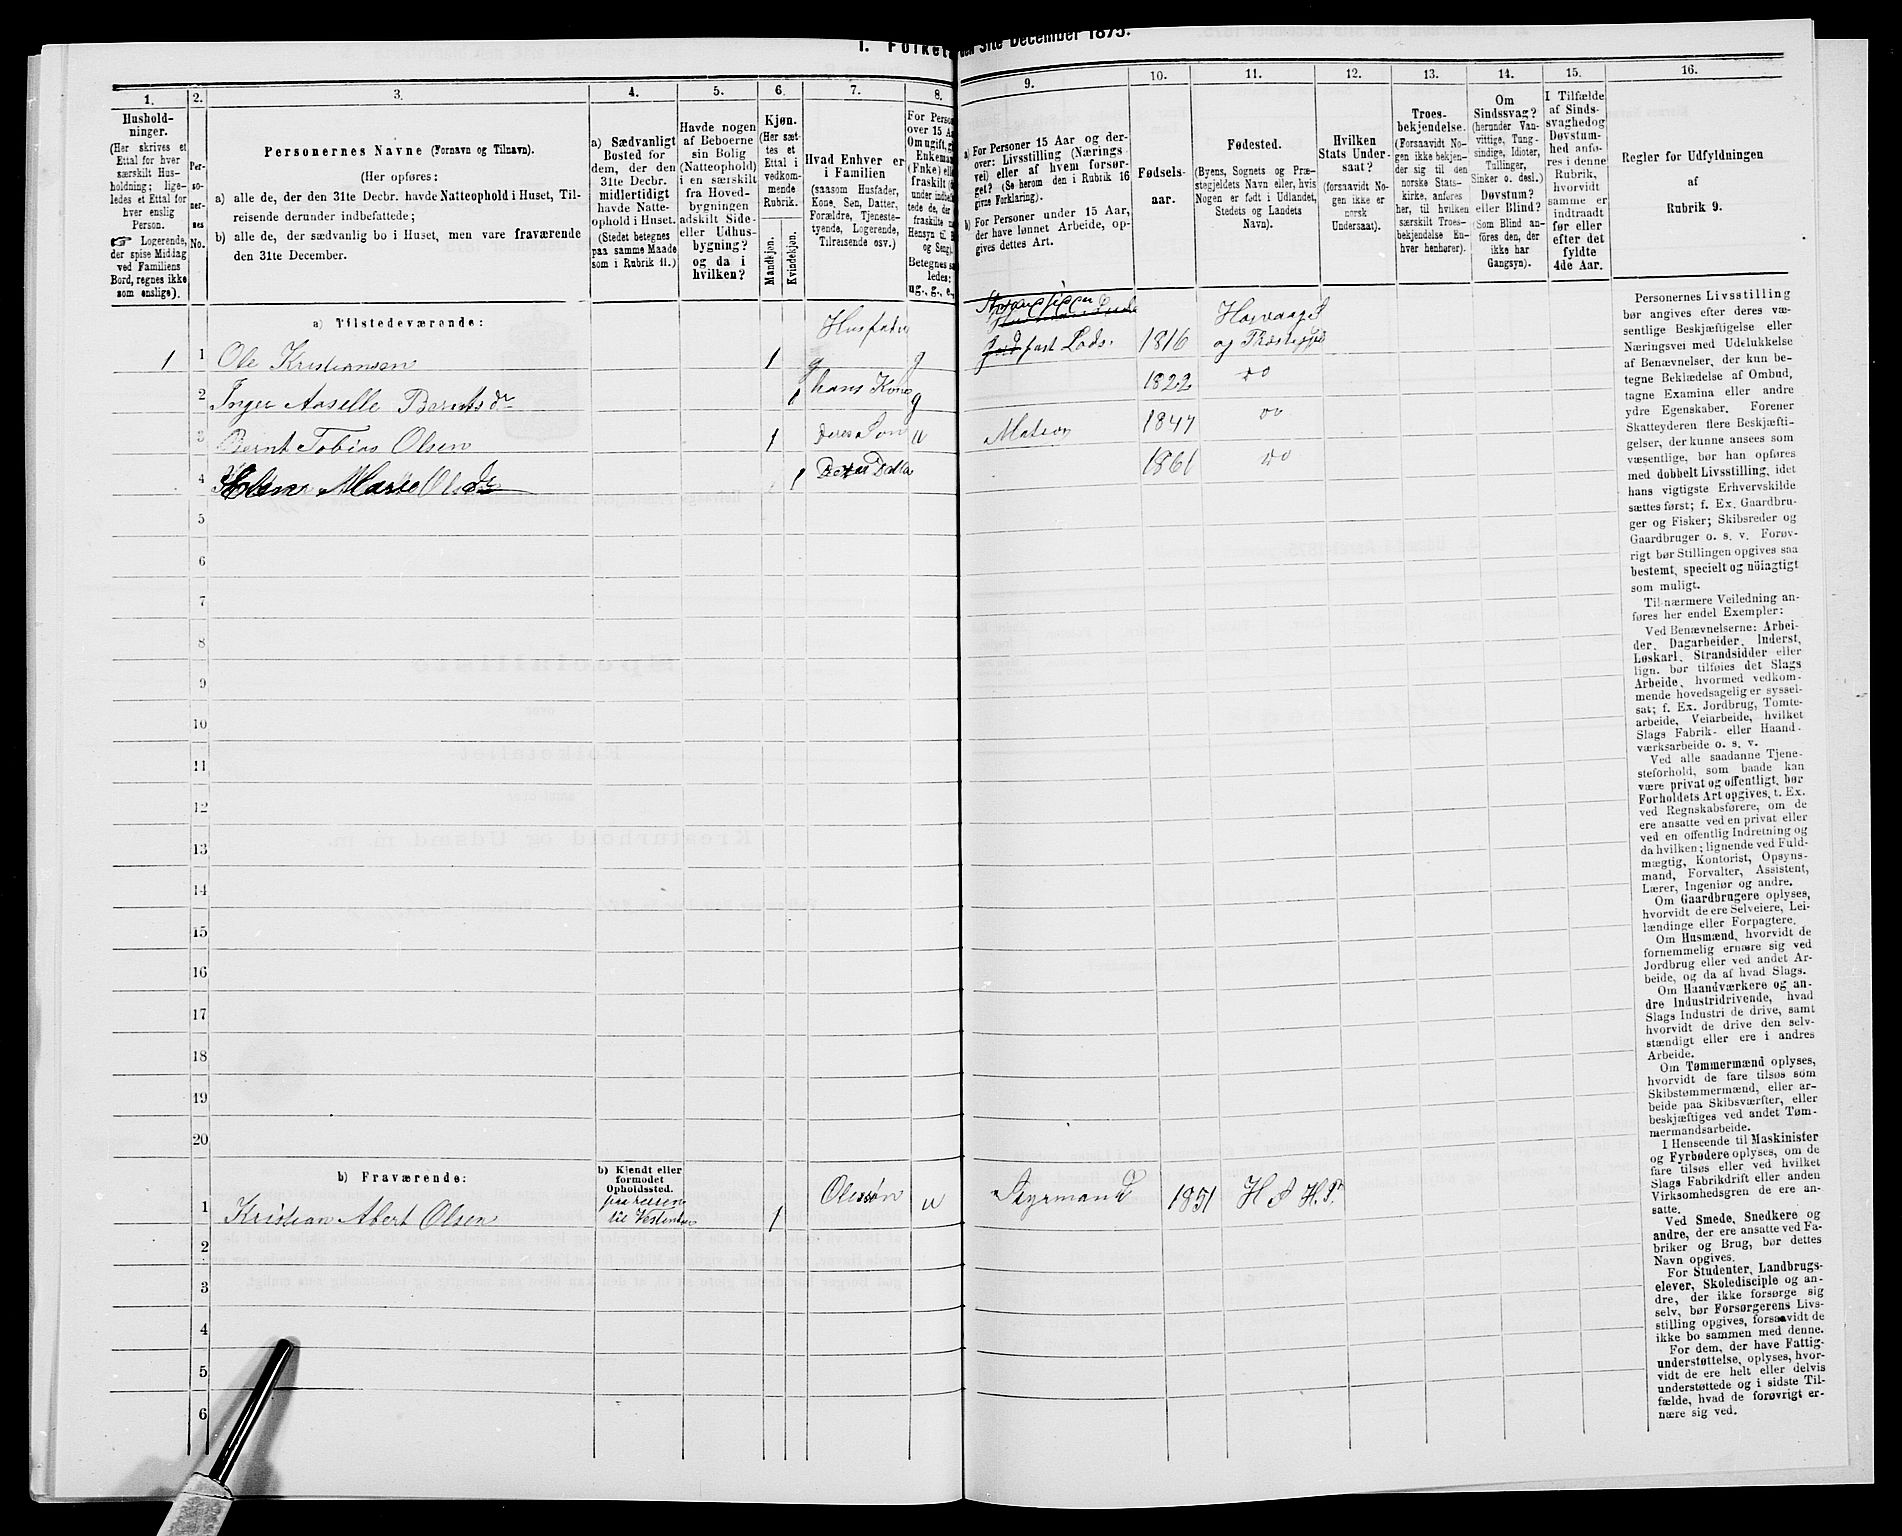 I. Folket den 31te December 1875.
1. 2. 3. 4. 5. 6. 7. 8.
Hushold-
ninger.
(Her skrives et
Ettal for hver
særskilt Hus-
holdning; lige-
ledes et Ettal for
hver enslig
Person.
Logerende,
der spise Middag
ved Familiens
Bord, regnes ikke
som enslige).
Per-
so-
ner-
nes
No.
Personernes Navne (Fornavn og Tilnavn).
(Her opføres:
a) alle de, der den 31te Decbr. havde Natteophold i Huset, Til-
reisende derunder indbefattede;
b) alle de, der sædvanlig bo i Huset, men vare fraværende
den 31te December.
a) Sædvanligt
Bosted for
dem, der den
31te Decbr.
midlertidigt
havde Natte-
ophold i Huset.
(Stedet betegnes
paa samme Maade
som i Rubrik 11.)
Havde nogen
af Beboerne
sin Bolig
(Natteophold)
i en særskilt
fra Hoved-
bygningen
adskilt Side-
eller Udhus-
bygning?
og da i
hvilken?
Kjøn.
(Her sæt-
tes et
Ettal i
vedkom-
mende
Rubrik.
Mandkjøn.
Kvindekjøn.
Hvad Enhver er
i Familien
(saasom Husfader,
Kone, Søn, Datter,
Forældre, Tjeneste-
tyende, Logerende,
Tilreisende osv.)
For Person
over 15 Aa
Om ugift, g
Enkemand
(Enke) ell
fraskilt
under indbe
tede de, der
fraskilte
Hensyn til B
og Seng.
Betegnes saa
ledes:
ug., g., e.,
a) Tilstedeværende:
1 1 Ole Kristiansen 1 Husfader g
2 Inger Aaselle Berntsdr 1 hans Kone g
3 Bernt Tobias Olsen 1 deres Søn u
4 Marie Olsdr 1 Datter
5
6
7
8
9
10
11
12
13
14
15
16
17
18
19
20
b) Fraværende:
b) Kjendt eller
formodet
Opholdssted.
paa reisen
til Vestindien
1 Kristian Abert Olsen 1 Olessøn u
2
3
4
5
6
9. 10. 11. 12. 13. 14. 15. 16.
a) For Personer 15 Aar og der-
over: Livsstilling (Nærings-
vei) eller af hvem forsør-
get? (Se herom den i Rubrik 16
givne Forklaring).
b) For Personer under 15 Aar,
der have lønnet Arbeide, op-
gives dettes Art.
Fødsels-
aar.
Fødested.
(Byens, Sognets og Præ-
stegjeldets Navn eller, hvis
Nogen er født i Udlandet,
Stedets og Landets
Navn).
Hvilken
Stats Under-
saat?
(forsaavidt No-
gen ikke er
norsk
Undersaat).
Troes-
bekjendelse.
(Forsaavidt No-
gen ikke bekjen-
der sig til den
norske Stats-
kirke, anføres
her, til hvilken
særskilt Troes-
bekjendelse En-
hver henhører).
Om
Sindssvag?
(herunder Van-
vittige, Tung-
sindige, Idioter,
Tullinger,
Sinker o. desl.)
Døvstum?
eller Blind?
(Som Blind an-
føres den, der
ikke har
Gangsyn).
I Tilfælde
af Sinds-
svaghed og
Døvstum-
hed anfø-
res i denne
Rubrik,
hvorvidt
samme er
indtraadt
før eller
efter det
fyldte
4de Aar.
Regler for Udfyldningen
af
Rubrik 9.
fast Lods. 1816 og
1822 do
Matros 1847 do
1861 do
Styrmand 1851 H S H. P.
Personernes Livsstilling
bør angives efter deres væ-
sentlige Beskjæftigelse eller
Næringsvei med Udelukkelse
af Benævnelser, der kun be-
tegne Beklædelse af Ombud,
tagne Examina eller andre
ydre Egenskaber. Forener
Skatteyderen flere Beskjæfti-
gelser, der kunne ansees som
væsentlige, bør han opføres
med dobbelt Livsstilling, idet
hans vigtigste Erhvervskilde
sættes først; f. Ex. Gaardbru-
ger og Fisker; Skibsreder og
Gaardbruger o. s. v. Forøv-
rigt bør Stillingen opgives saa
bestemt, specielt og nöiagtigt
som muligt.
Til nærmere Veiledning an-
føres her endel Exempler:
Ved Benævnelserne: Arbei-
der, Dagarbeider, Inderst,
Løskarl, Strandsidder eller
lign. bør tilføies det Slags
Arbeide, hvormed vedkom-
mende hovedsagelig er syssel-
sat; f. Ex. Jordbrug, Tomte-
arbeide, Veiarbeide, hvilket
Slags Fabrik- eller Haand-
værksarbeide o. s. v.
Ved alle saadanne Tjene-
steforhold, som baade kan
være privat og offentligt, bør
Forholdets Art opgives, t. Ex.
ved Regnskabsførere, om de
ere ansatte ved en privat eller
ved en offentlig Indretning og
da hvilken; lignende ved Fuld-
mægtig, Kontorist, Opsyns-
mand, Forvalter, Assistent,
Lærer, Ingeniør og andre.
Om Gaardbrugere oplyses,
hvorvidt de ere Selveiere, Lei-
lændinge eller Forpagtere.
Om Husmænd, hvorvidt de
fornemmelig ernære sig ved
Jordbrug eller ved andet Ar-
beide, og da af hvad Slags.
Om Haandværkere og an-
dre Industridrivende, hvad
Slags Industri de drive, samt
hvorvidt de drive den selv-
stændigt eller ere i andres
Arbeide.
Om Tømmermænd oplyses,
hvorvidt de fare tilsøs som
Skibstømmermænd, eller ar-
beide paa Skibsværfter, eller
beskjæftiges ved andet Tøm-
mermandsarbeide.
I Henseende til Maskinister
og Fyrbødere oplyses, om de
fare tilsøs eller ved hvilket
Slags Fabrikdrift eller anden
Virksomhedsgren de ere an-
satte.
Ved Smede, Snedkere og
andre, der ere ansatte ved Fa-
briker og Brug, bør dettes
Navn opgives.
For Studenter, Landbrugs-
elever, Skoledisciple og an-
dre, der ikke forsørge sig
selv, bør Forsørgerens Livs-
stilling opgives, forsaavidt de
ikke bo sammen med denne.
For dem, der have Fattig-
understøttelse, oplyses, hvor-
vidt de ere helt eller delvis
understøttede og i sidste Til-
fælde, hvad de forøvrigt er-
nære sig ved.